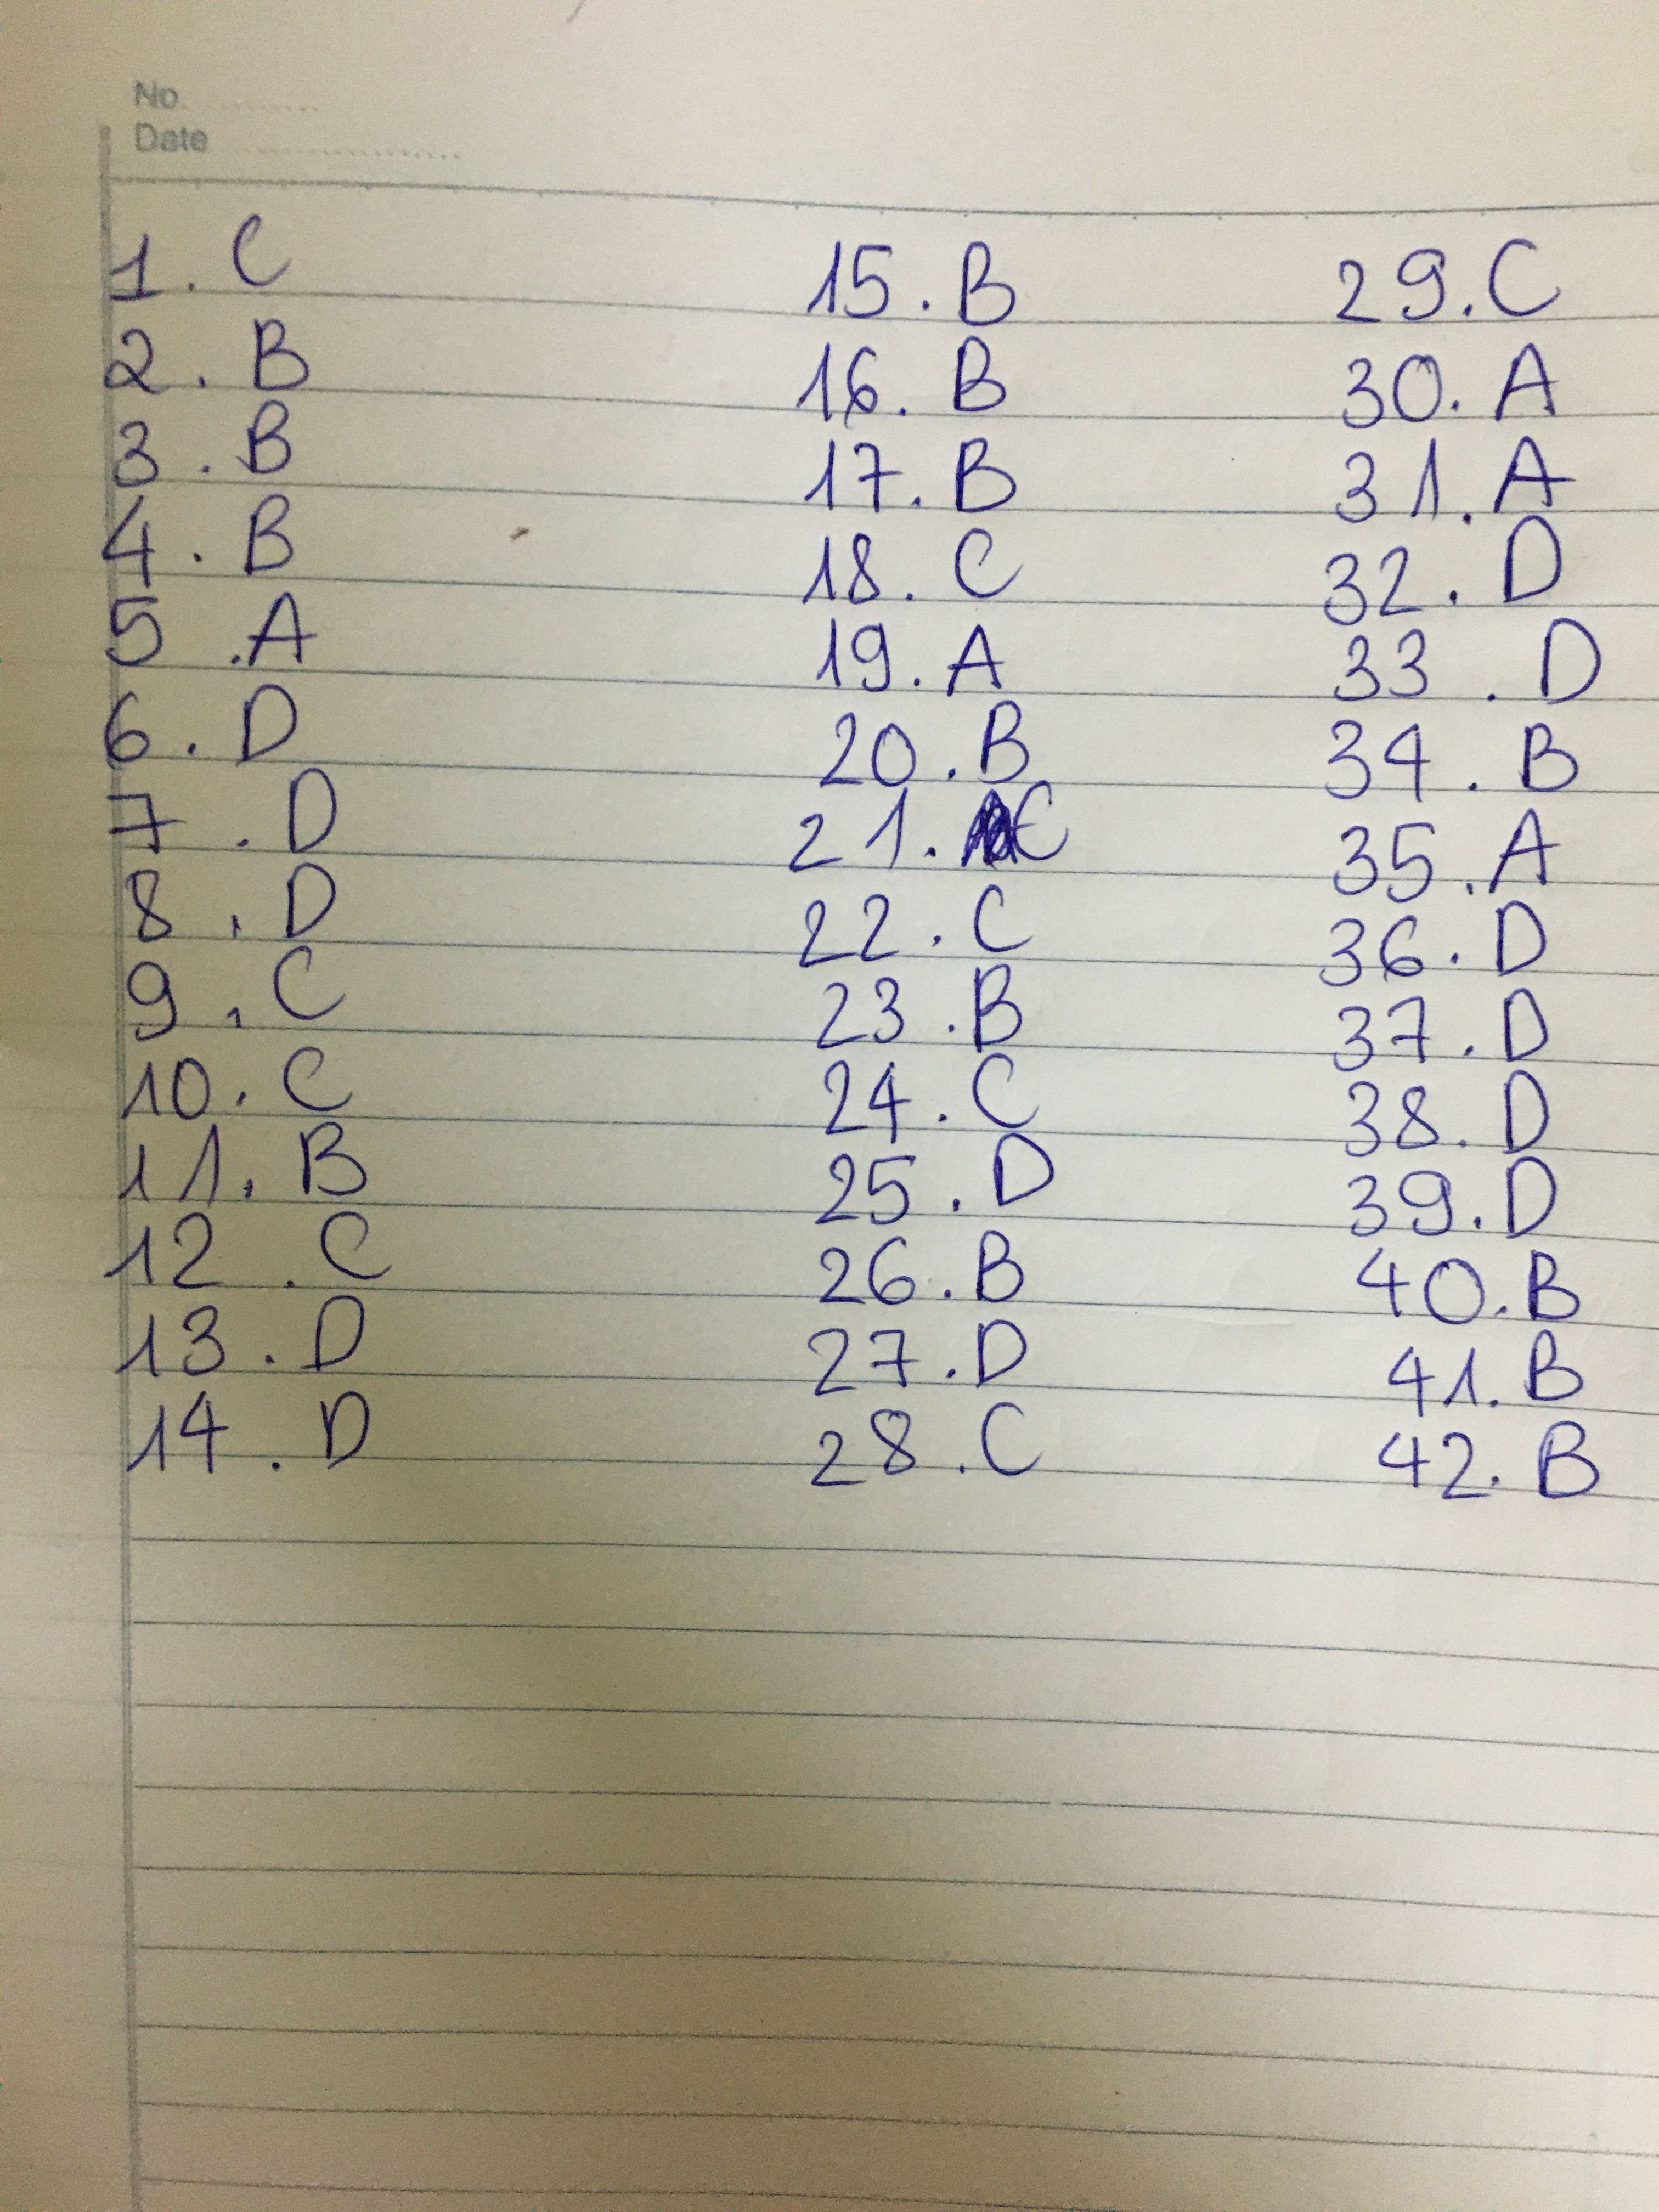 No.
Date
1. C
2. B
3. B
4. B
5. A
6. D
7. D
8. D
9. C
10. C
11. B
12. C
13. D
14. D
15. B
16. B
17. B
18. C
19. A
20. B
21. C
22. C
23. B
24. C
25. D
26. B
27. D
28. C
29. C
30. A
31. A
32. D
33. D
34. B
35. A
36. D
37. D
38. D
39. D
40. B
41. B
42. B